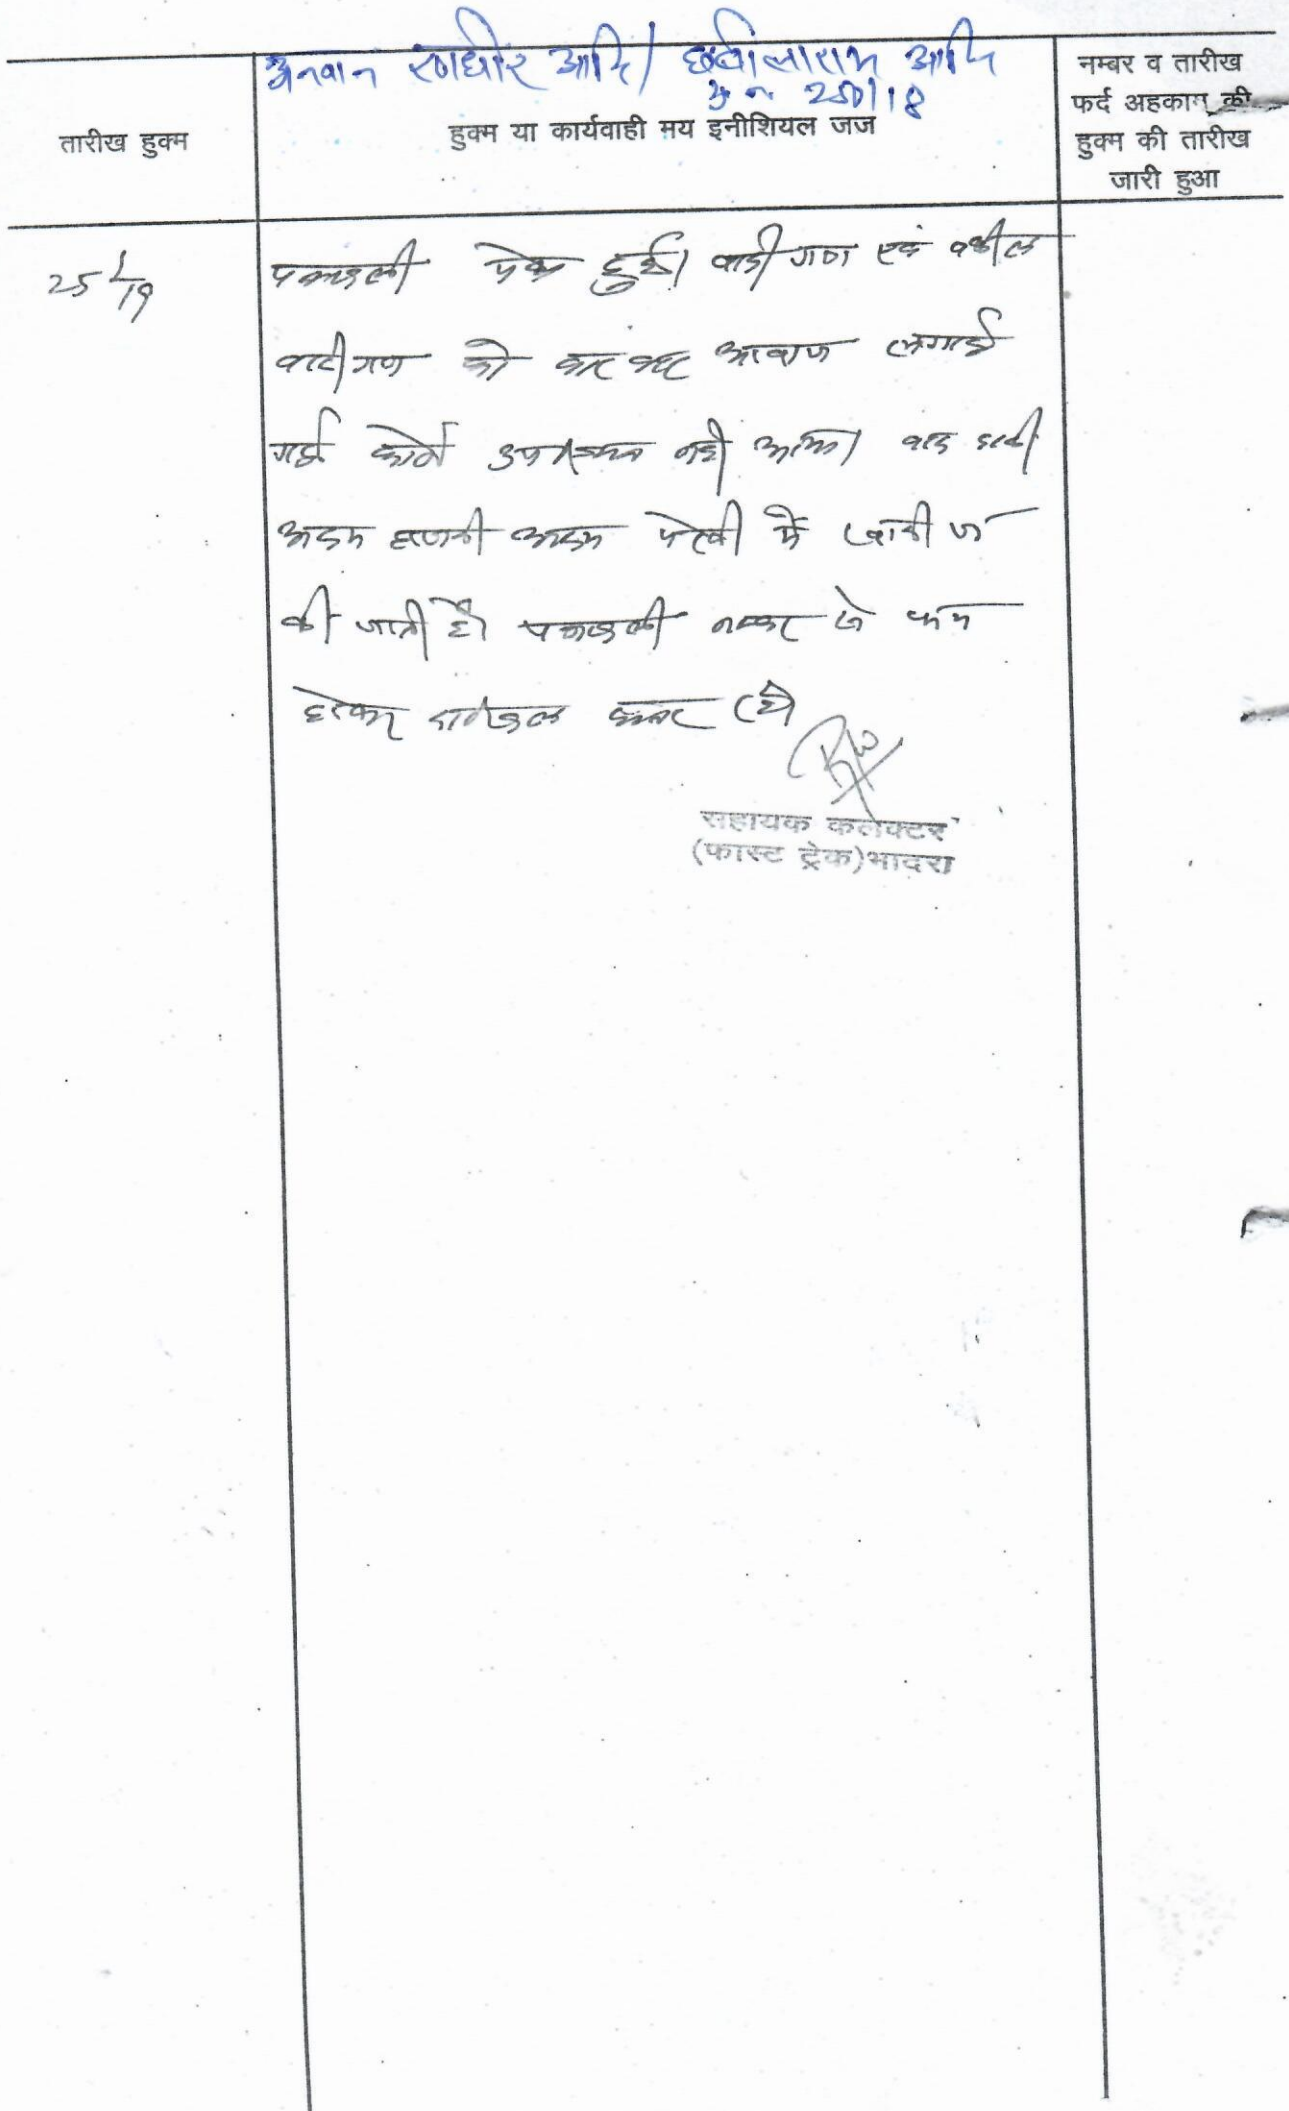 अनवान रणधीर आदि / छबीलाराम आदि
मु न 250/18
तारीख हुक्म
हुक्म या कार्यवाही मय इनीशियल जज
नम्बर व तारीख
फर्द अहकाम की
हुक्म की तारीख
जारी हुआ
25/1/19
पत्रावली पेश हुई। वादीगण एवं वकील
वादीगण को बार बार आवाज लगाई
गई कोई उपस्थित नही आया। वाद
अदम हाजरी अदम पैरवी में खारीज
की जाती है। पत्रावली नम्बर से कम
होकर दाखिल दफ्तर हो।
सहायक कलेक्टर
(फास्ट ट्रेक)भादरा